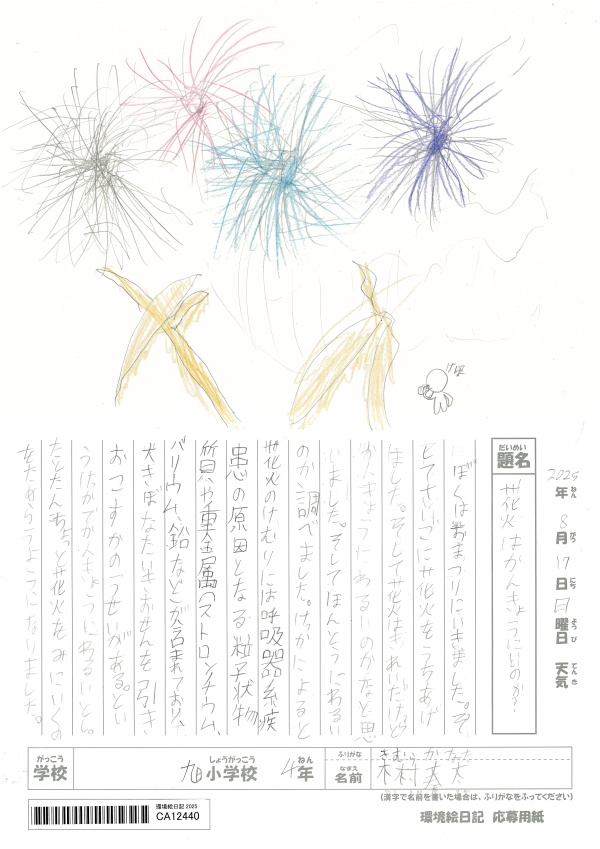 げほ
だいめい
題名
花火はかんきょうにいいのか？
2025年 8月 17日 日曜日 天気
ねん がつ にち ようび てんき
ぼくはおまつりにいきました。そ
してさいごに花火をうちあげ
ました。そして花火はきれいだけど
かんきょうにわるいのかなと思
いました。そしてほんとうにわるい
のか調べました。けっかによると
花火のけむりには呼吸器系疾
患の原因となる粒子状物
質や重金属(ストロンチウム、
バリウム、鉛などが含まれており、
大きぼなたいきおせんを引き
おこすかのうせいがある。とい
うけっかでかんきょうにわるいと。
たらちょっと花火をみにいくの
がっこう
学校
旭小学校
しょうがっこう
4年
ねん
ふりがな
きむら かなた
なまえ
名前
木村
(漢字で名前を書いた場合は、ふりがなをふってください)
環境絵日記 2025
CA12440
環境絵日記 応募用紙